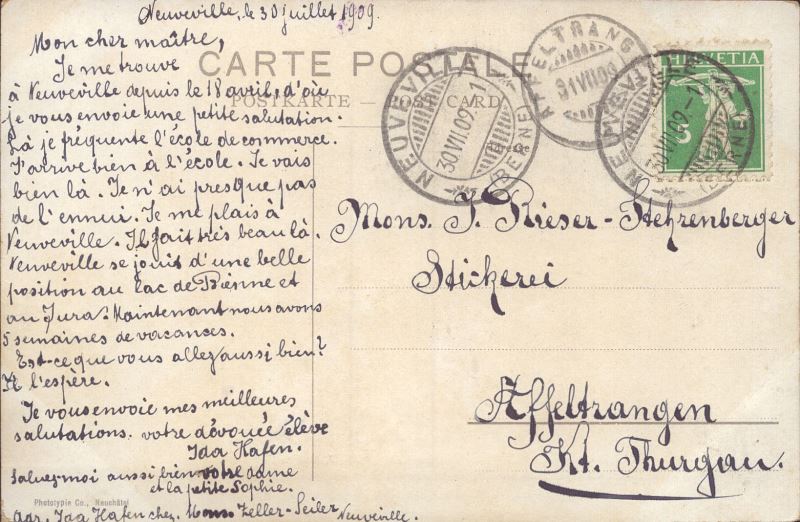 Neuveville, le 30 juillet 1909.
Mon cher maître,
Je me trouve
à Neuveville depuis le 18 avril, d'où
je vous envoie une petite salutation.
Là je fréquente l'école de commerce.
J'arrive bien à l'école. Je vais
bien là. Je n'ai presque pas
de l'ennui. Je me plais à
Neuveville. Il fait très beau là.
Neuveville se jouit d'une belle
position au lac de Bienne et
au Jura. Maintenant nous avons
5 semaines de vacances.
Est-ce que vous allez aussi bien?
Je l'espère.
Je vous envoie mes meilleures
salutations. votre dévouée élève
Ida Hafen.
Saluez-moi aussi bien votre dame
et la petite Sophie.
Adr. Ida Hafen chez Mons. Zeller-Seiler Neuveville.
Phototypie Co., Neuchâtel
CARTE POSTALE
POSTKARTE – POST CARD
Adresse
NEUVEVILLE
30 VII 09. – 1
(BERNE)
AFFELTRANG
31 VII 09
HELVETIA
5
NEUVEVILLE
30 VII 09. – 1
(BERNE)
Mons. J. Rieser-Stehrenberger
Stickerei
Affeltrangen
Kt. Thurgau.